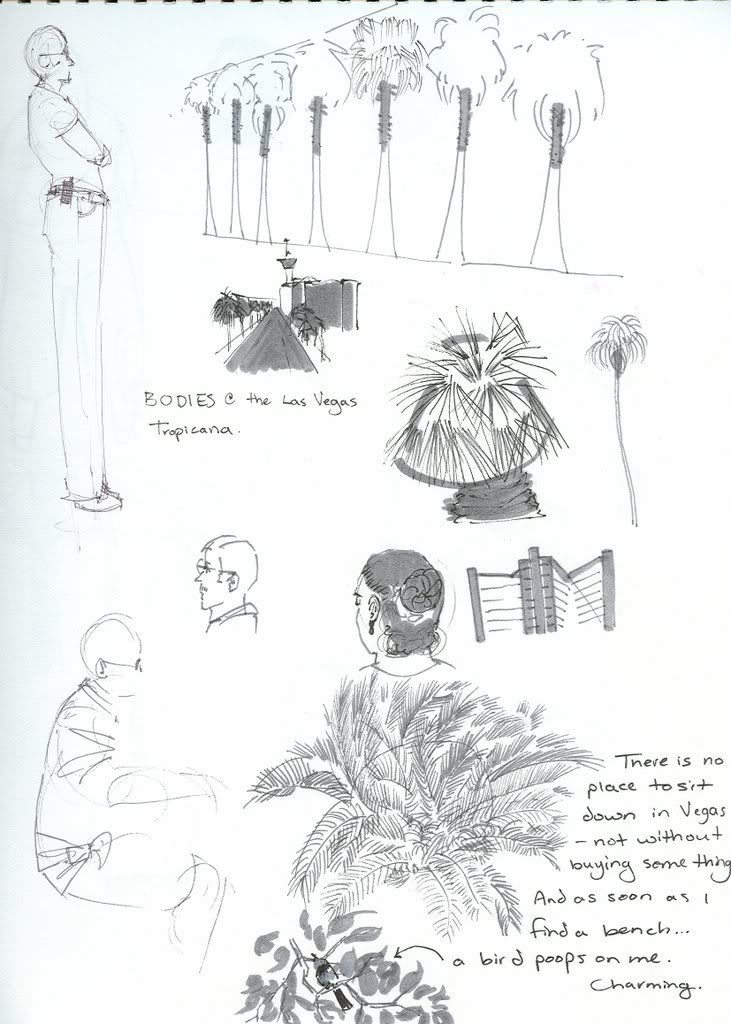 BODIES @ the Las Vegas
Tropicana.
There is no
place to sit
down in Vegas
- not without
buying something
And as soon as I
find a bench...
a bird poops on me.
Charming.